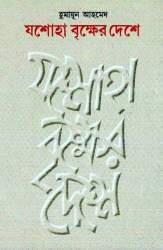 হুমায়ূন আহমেদ
যশোহা বৃক্ষের দেশে
যশোহা
বৃক্ষের
দেশে